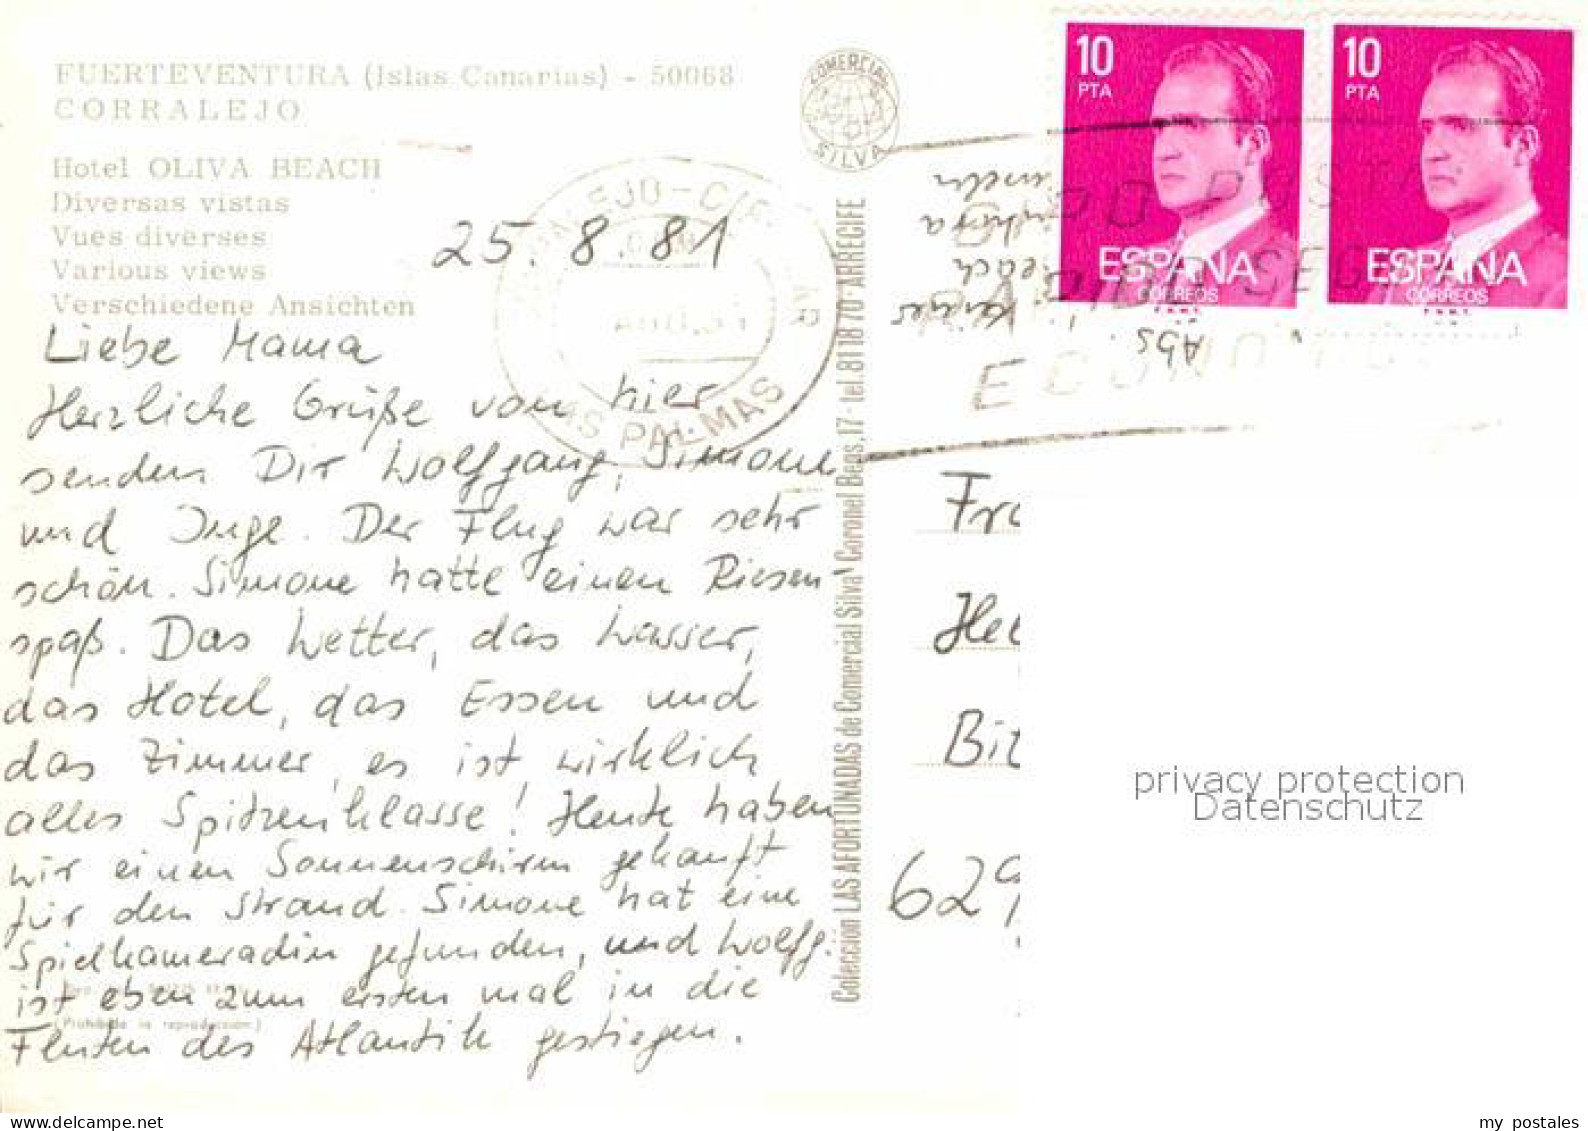 FUERTEVENTURA (Islas Canarias) - 50068
CORRALEJO
Hotel OLIVA BEACH
Diversas vistas
Vues diverses
Various views
Verschiedene Ansichten
25.8.81
Liebe Mama
Herzliche Grüße von hier
senden Dir Wolfgang, Simone
und Inge. Der Flug war sehr
schön. Simone hatte einen Riesen-
spaß. Das Wetter, das Wasser,
das Hotel, das Essen und
das Zimmer, es ist wirklich
alles Spitzenklasse! Heute haben
wir einen Sonnenschirm gekauft
für den Strand. Simone hat eine
Spielkameradin gefunden, und Wolfg.
ist eben zum ersten mal in die
Fluten des Atlantik gestiegen.
(Prohibida la reproducción.)
COMERCIAL
SILVA
Colección LAS AFORTUNADAS de Comercial Silva Coronel Bens, 17 - tel. 81 18 70 - ARRECIFE
LAS PALMAS
10
PTA
ESPAÑA
CORREOS
F.N.M.T.
10
PTA
ESPAÑA
CORREOS
F.N.M.T.
Abs.
Fra
Hei
Bit
629
privacy protection
Datenschutz
my postales